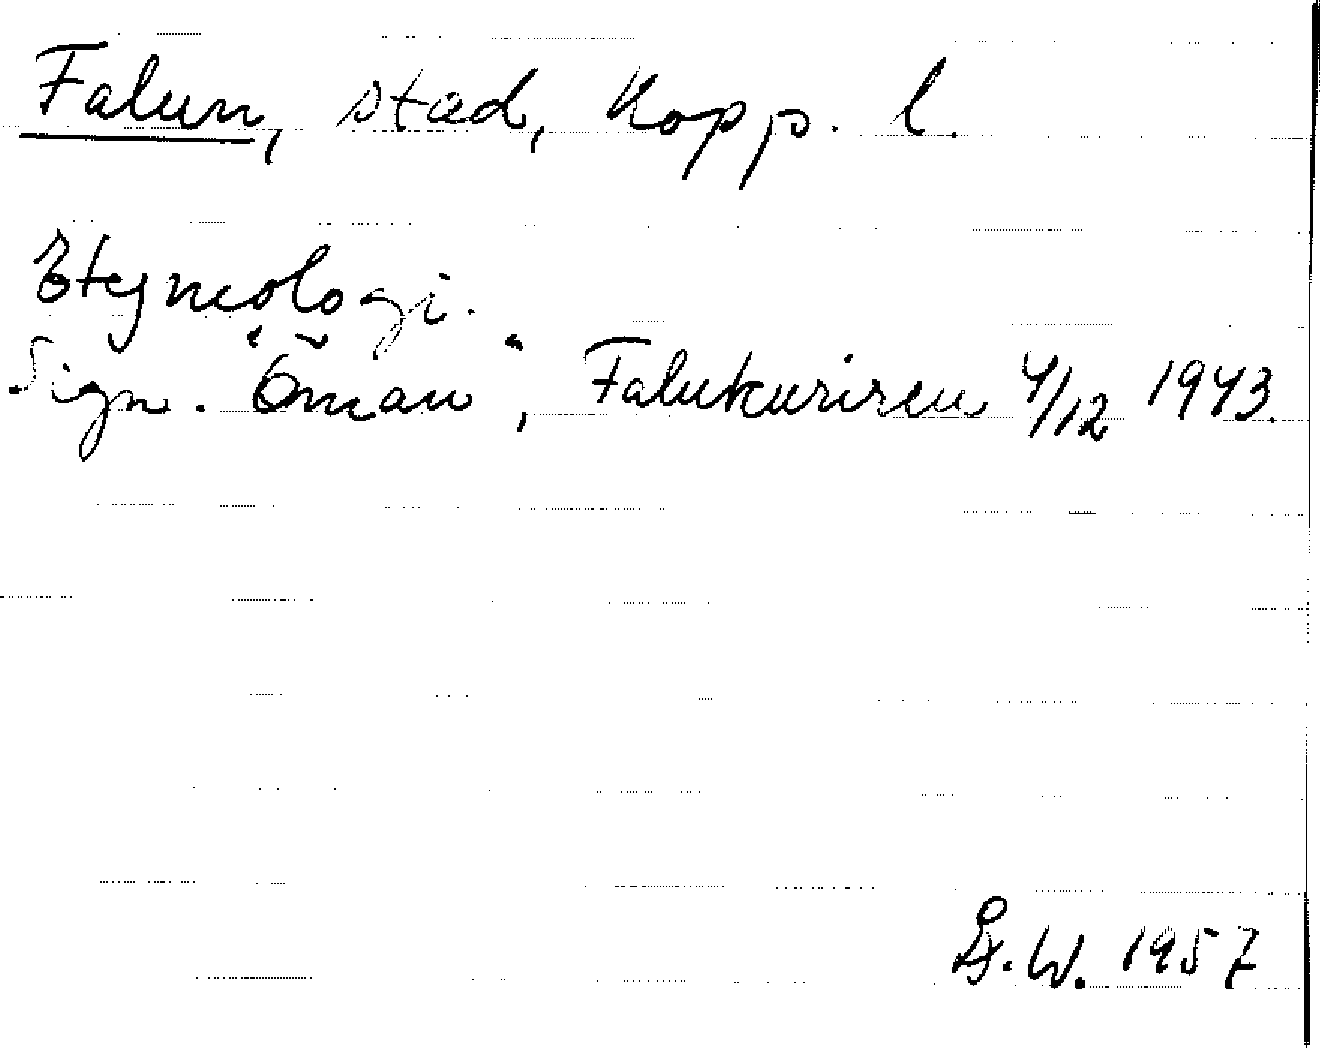 Falun, stad, Kopp. l.
Etymologi.
Sign. "Öman", Falukuriren 4/12 1943.
L.W. 1957